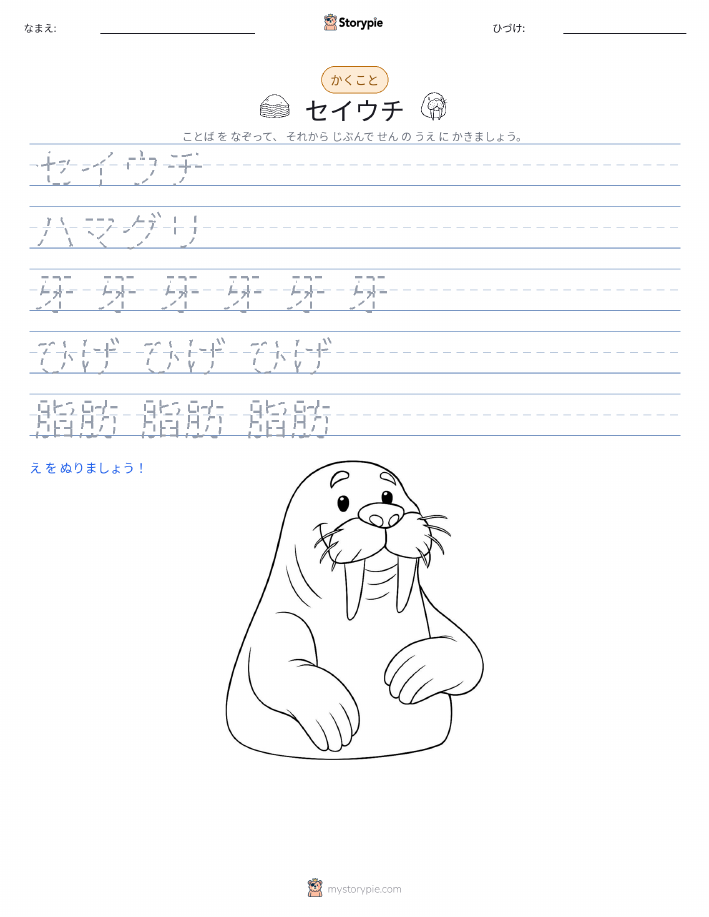 なまえ:
Storypie
ひづけ:
かくこと
セイウチ
ことば を なぞって、 それから じぶんで せん の うえ に かきましょう。
セイウチ
ハマグリ
牙 牙 牙 牙 牙 牙
ひげ ひげ ひげ
脂肪 脂肪 脂肪
え を ぬりましょう！
mystorypie.com